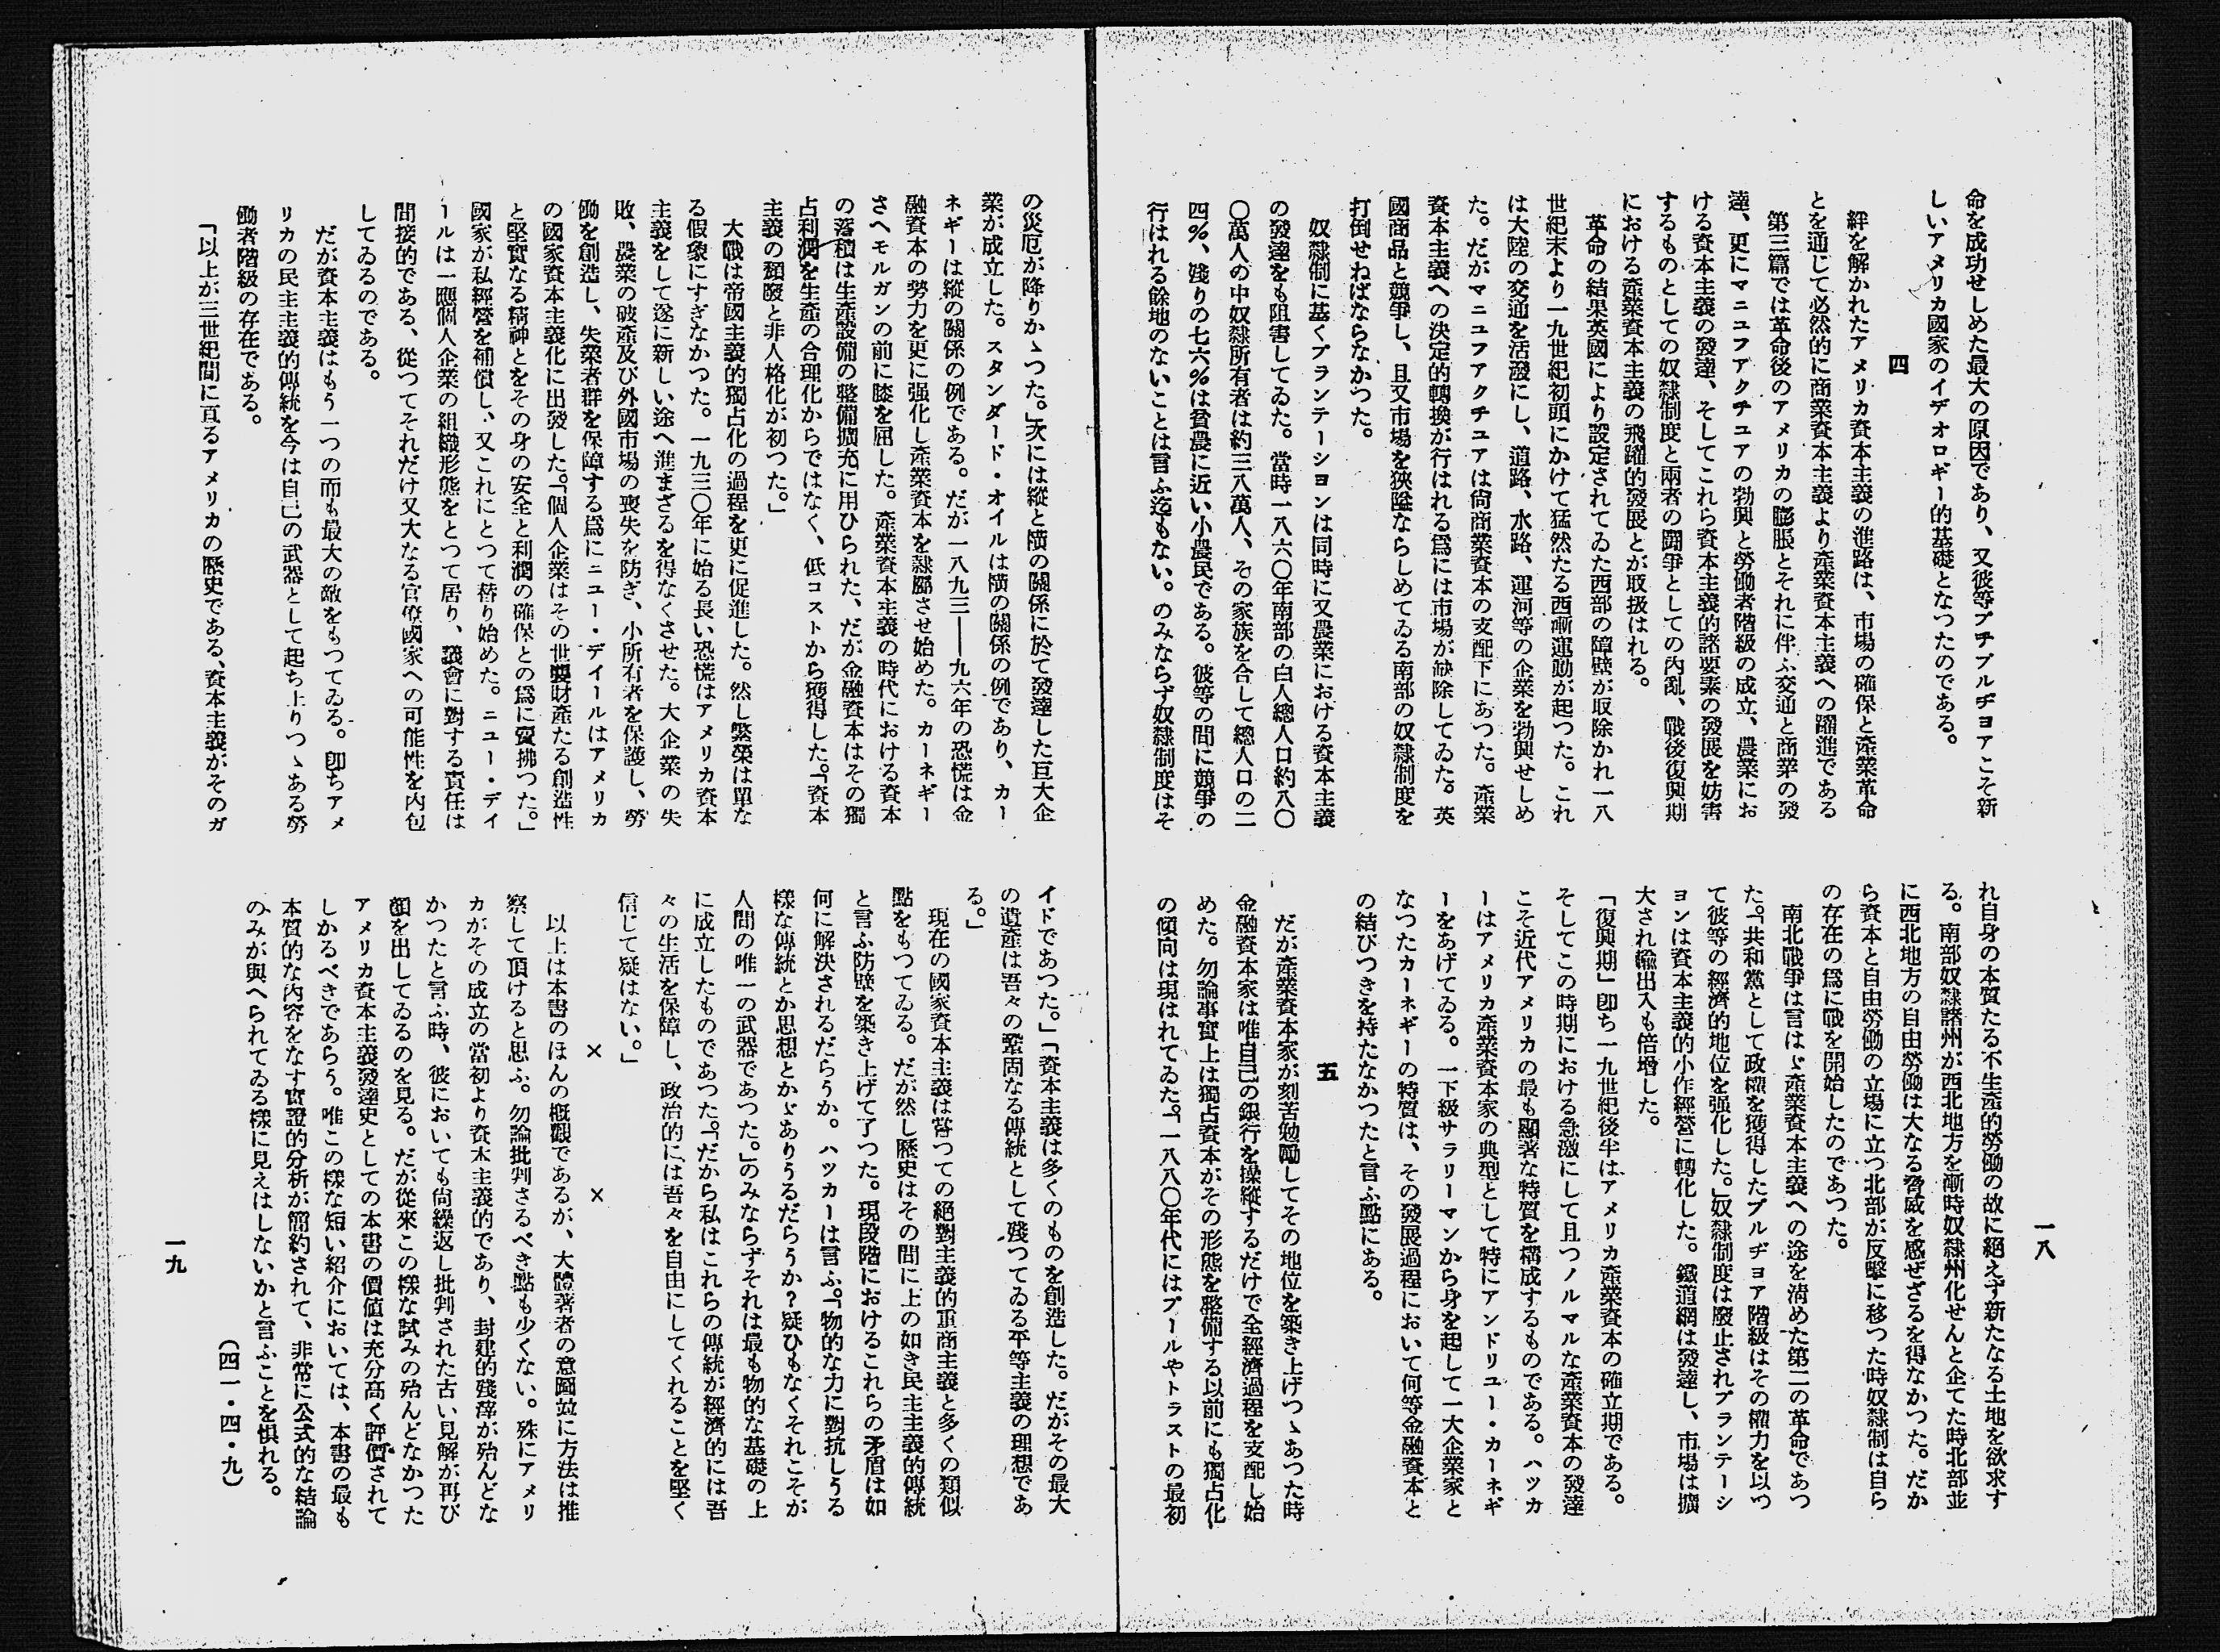 命を成功せしめた最大の原因であり、又彼等プチブルヂヨアこそ新
しいアメリカ國家のイデオロギー的基礎となつたのである。
四
絆を解かれたアメリカ資本主義の進路は、市場の確保と產業革命
とを通じて必然的に商業資本主義より產業資本主義への躍進である
第三篇では革命後のアメリカの膨脹とそれに伴ふ交通と商業の發
達、更にマニユフアクチユアの勃興と勞働者階級の成立、農業にお
ける資本主義の發達、そしてこれら資本主義的諸要素の發展を妨害
するものとしての奴隸制度と兩者の鬪爭としての內亂、戰後復興期
における產業資本主義の飛躍的發展とが取扱はれる。
革命の結果英國により設定されてゐた西部の障壁が取除かれ一八
世紀末より一九世紀初頭にかけて猛然たる西漸運動が起つた。これ
は大陸の交通を活潑にし、道路、水路、運河等の企業を勃興せしめ
た。だがマニユフアクチユアは尙商業資本の支配下にあつた。產業
資本主義への決定的轉換が行はれる爲には市場が缺除してゐた。英
國商品と競爭し、且又市場を狹隘ならしめてゐる南部の奴隸制度を
打倒せねばならなかつた。
奴隸制に基くプランテーシヨンは同時に又農業における資本主義
の發達をも阻害してゐた。當時一八六〇年南部の白人總人口約八〇
〇萬人の中奴隸所有者は約三八萬人、その家族を合して總人口の二
四%、殘りの七六%は貧農に近い小農民である。彼等の間に競爭の
行はれる餘地のないことは言ふ迄もない。のみならず奴隸制度はそ
れ自身の本質たる不生產的勞働の故に絕えず新たなる土地を欲求す
る。南部奴隸諸州が西北地方を漸時奴隸州化せんと企てた時北部並
に西北地方の自由勞働は大なる脅威を感ぜざるを得なかつた。だか
ら資本と自由勞働の立場に立つ北部が反擊に移つた時奴隸制は自ら
の存在の爲に戰を開始したのであつた。
南北戰爭は言はゞ產業資本主義への途を淸めた第二の革命であつ
た。「共和黨として政權を獲得したブルヂヨア階級はその權力を以つ
て彼等の經濟的地位を强化した。」奴隸制度は廢止されプランテーシ
ヨンは資本主義的小作經營に轉化した。鐵道網は發達し、市場は擴
大され輸出入も倍增した。
「復興期」卽ち一九世紀後半はアメリカ產業資本の確立期である。
そしてこの時期における急激にして且つノルマルな產業資本の發達
こそ近代アメリカの最も顯著な特質を構成するものである。ハツカ
ーはアメリカ產業資本家の典型として特にアンドリユー・カーネギ
ーをあげてゐる。一下級サラリーマンから身を起して一大企業家と
なつたカーネギーの特質は、その發展過程において何等金融資本と
の結びつきを持たなかつたと言ふ點にある。
五
だが產業資本家が刻苦勉勵してその地位を築き上げつゝあつた時
金融資本家は唯自己の銀行を操縱するだけで全經濟過程を支配し始
めた。勿論事實上は獨占資本がその形態を整備する以前にも獨占化
の傾向は現はれてゐた。「一八八〇年代にはプールやトラストの最初
一八
の災厄が降りかゝつた。」次には縱と橫の關係に於て發達した巨大企
業が成立した。スタンダード・オイルは橫の關係の例であり、カー
ネギーは縱の關係の例である。だが一八九三――九六年の恐慌は金
融資本の勞力を更に强化し產業資本を隸屬させ始めた。カーネギー
さへモルガンの前に膝を屈した。產業資本主義の時代における資本
の蓄積は生產設備の整備擴充に用ひられた、だが金融資本はその獨
占利潤を生產の合理化からではなく、低コストから獲得した。「資本
主義の頽廢と非人格化が初つた。」
大戰は帝國主義的獨占化の過程を更に促進した。然し繁榮は單な
る假象にすぎなかつた。一九三〇年に始る長い恐慌はアメリカ資本
主義をして遂に新しい途へ進まざるを得なくさせた。大企業の失
敗、農業の破產及び外國市場の喪失を防ぎ、小所有者を保護し、勞
働を創造し、失業者群を保障する爲にニユー・デイールはアメリカ
の國家資本主義化に出發した。「個人企業はその世襲財產たる創造性
と堅實なる精神とをその身の安全と利潤の確保との爲に賣拂つた。」
國家が私經營を補償し、又これにとつて替り始めた。ニユー・デイ
ールは一應個人企業の組織形態をとつて居り、議會に對する責任は
間接的である、從つてそれだけ又大なる官僚國家への可能性を內包
してゐるのである。
だが資本主義はもう一つの而も最大の敵をもつてゐる。卽ちアメ
リカの民主主義的傳統を今は自己の武器として起ち上りつゝある勞
働者階級の存在である。
「以上が三世紀間に亘るアメリカの歷史である、資本主義がそのガ
イドであつた。」「資本主義は多くのものを創造した。だがその最大
の遺產は吾々の鞏固なる傳統として殘つてゐる平等主義の理想であ
る。」
現在の國家資本主義は嘗つての絕對主義的重商主義と多くの類似
點をもつてゐる。だが然し歷史はその間に上の如き民主主義的傳統
と言ふ防壁を築き上げて了つた。現段階におけるこれらの矛盾は如
何に解決されるだらうか。ハツカーは言ふ。「物的な力に對抗しうる
樣な傳統とか思想とかゞありうるだらうか?疑ひもなくそれこそが
人間の唯一の武器であつた。」のみならずそれは最も物的な基礎の上
に成立したものであつた。「だから私はこれらの傳統が經濟的には吾
々の生活を保障し、政治的には吾々を自由にしてくれることを堅く
信じて疑はない。」
×　×
以上は本書のほんの槪觀であるが、大體著者の意圖並に方法は推
察して頂けると思ふ。勿論批判さるべき點も少くない。殊にアメリ
カがその成立の當初より資本主義的であり、封建的殘滓が殆んどな
かつたと言ふ時、彼においても尙繰返し批判された古い見解が再び
顏を出してゐるのを見る。だが從來この樣な試みの殆んどなかつた
アメリカ資本主義發達史としての本書の價値は充分高く評價されて
しかるべきであらう。唯この樣な短い紹介においては、本書の最も
本質的な內容をなす實證的分析が簡約されて、非常に公式的な結論
のみが與へられてゐる樣に見えはしないかと言ふことを惧れる。
（四一・四・九）
一九